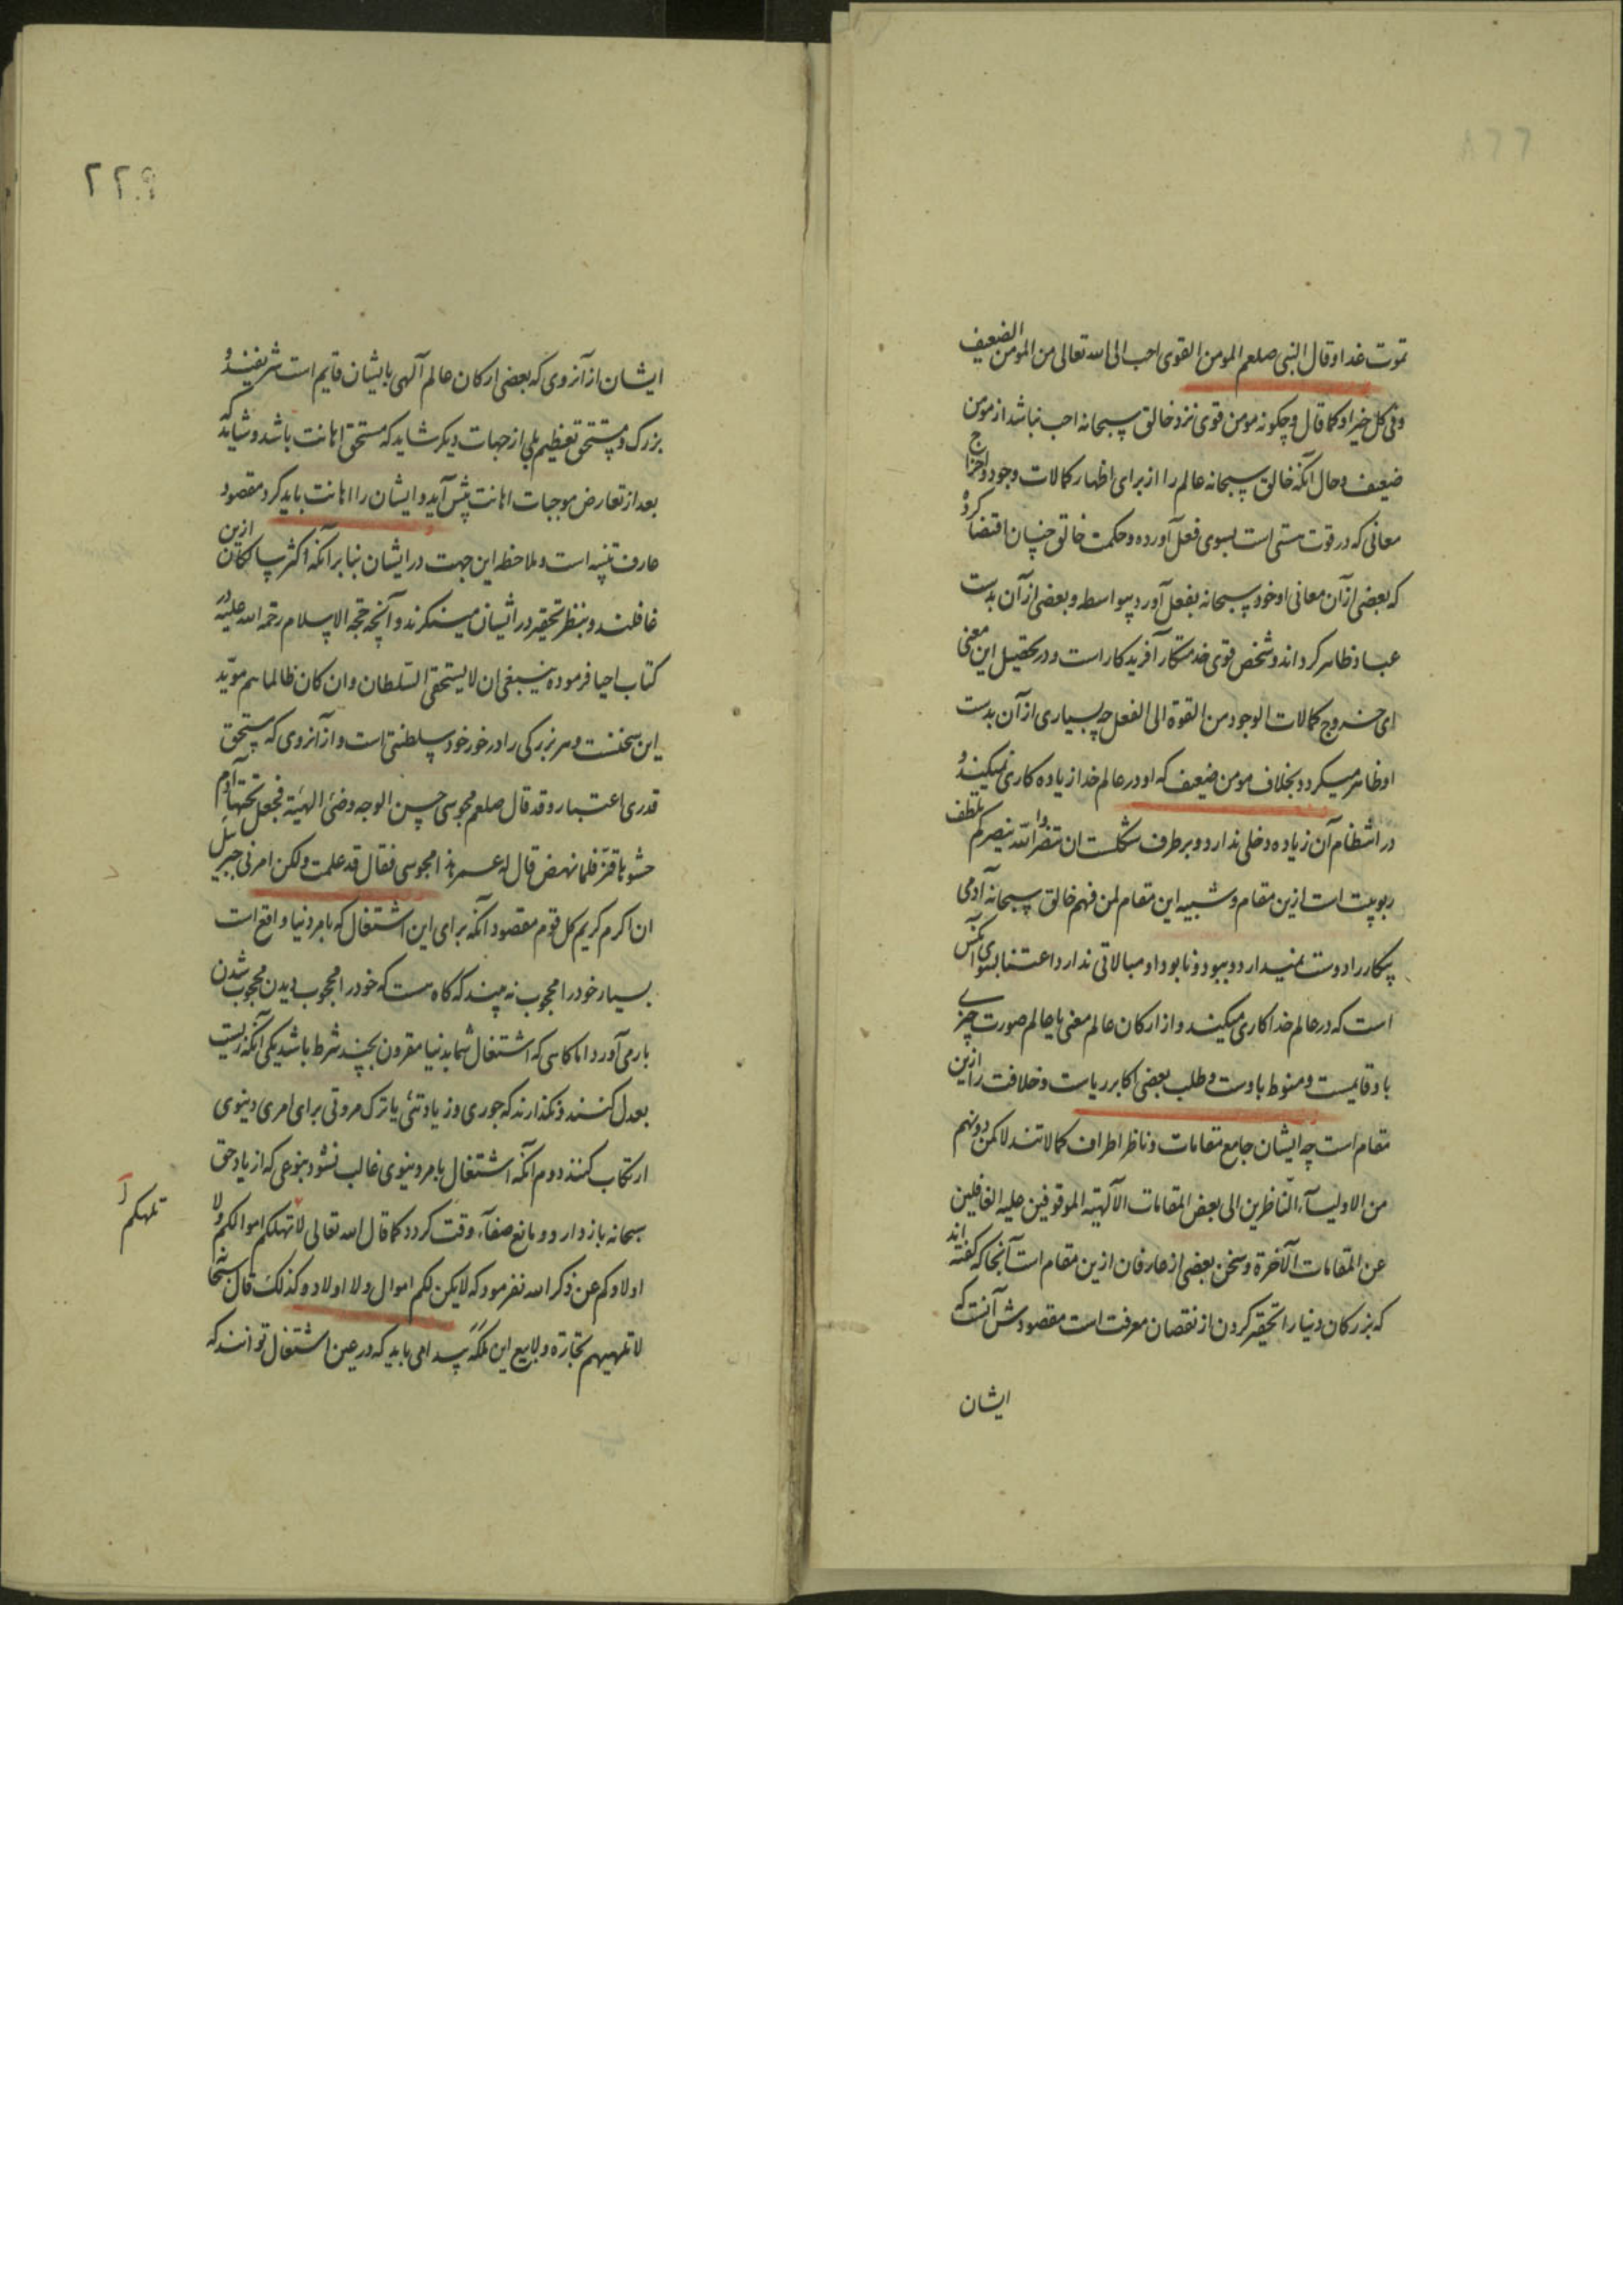 تموت غدا و قال النبی صلعم المومن القوی احب الی الله تعالی من المومن الضعیف
وفی کل خیر او کما قال و چکونه مومن قوی نزد خالق سبحانه احب نباشد از مومن
ضعیف و حال آنکه خالق سبحانه عالم را از برای اظهار کمالات وجود و اخراج
معانی که در قوت هستی است بسوی فعل آورده و حکمت خالق چنان اقتضا کرد
که بعضی از آن معانی او خود سبحانه بفعل آورد بیواسطه و بعضی از آن بدست
عباد ظاهر کرداند و شخص قوی خدمتکار آفریدکار است و در تحصیل این معنی
ای خروج کمالات الوجود من القوة الی الفعل چه بسیاری از آن بدست
او ظاهر میکردد بخلاف مومن ضعیف که او در عالم خدا زیاده کاری نمیکند و
در انتظام آن زیاده دخلی ندارد و بر طرف شکلست ان تنصروا الله ینصرکم تلطف
ربوبیت است ازین مقام و شبیه این مقام لمن فهم خالق سبحانه آدمی
بیکار را دوست نمیدارد و ببود و نابود او مبالاتی ندارد اعتنا بسوی آنکس
است که در عالم خدا کاری میکند و از ارکان عالم معنی یا عالم صورت چیزی
باو قایمست و منوط باوست و طلب بعضی اکابر ریاست و خلافت را ازین
مقام است چه ایشان جامع مقامات و ناظر اطراف کمالاتند لا کمن دونهم
من الاولیآء الناظرین الی بعض المقامات الآلهیته الموقوفین علیه الغافلین
عن المقامات الآخرة و سخن بعضی از عارفان ازین مقام است آنجا که کفته اند
که بزرکان دنیا را تحقیر کردن از نقصان معرفت است مقصودش آنست که
ایشان
۲۲۹
ایشان از آنروی که بعضی ارکان عالم آلهی بایشان قایم است شریفند و
بزرک و مستحق تعظیم بلی از جهات دیکر شاید که مستحق اهانت باشد و شاید که
بعد از تعارض موجبات اهانت پیش آید و ایشان را اهانت باید کرد مقصود
عارف تنبیه است و ملاحظه این جهت در ایشان بنابر آنکه اکثر سالکان ازین
غافلند و بنظر تحقیر در ایشان مینکرند و آنچه حجة الاسلام رحمة الله علیه در
کتاب احیا فرموده ینبغی ان لا یستحق السلطان وان کان ظالما هم موید
این سخنست و هر بزرکی را در خور خود سلطنتی است و از آنروی که مستحق
قدری اعتبار و قد قال صلعم مجوسی حسن الوجه وضئ الهیئة فجعل تحتها آدم
حشوها قز فلما نهض قال له عمر هذا مجوسی فقال قد علمت ولکن امرنی جبریل
ان اکرم کریم کل قوم مقصود آنکه برای این اشتغال که بامر دنیا واقع است
بسیار خود را محجوب نه بینید که کاه هست که خود را محجوب دیدن محجوب شدن
بار می آورد اما کاهی که اشتغال شما بدنیا مقرون بچند شرط باشد یکی آنکه زیست
بعدل کنند و نکذارند که جوری و زیادتئی یا ترک مروتی برای امری دینوی
ارتکاب کنند دوم آنکه اشتغال بامر دینوی غالب نشود بنوعی که از یاد حق
سبحانه بازدارد و مانع صفآء وقت کردد کما قال الله تعالی لا تهلکم اموالکم ولا
تلهکم
اولادکم عن ذکر الله نفرمود که لا یکن لکم اموال ولا اولاد و کذلک قال سبحانه
لا تلهیهم تجارة ولا بیع این ملکه پیدا می باید که در عین اشتغال توانند که